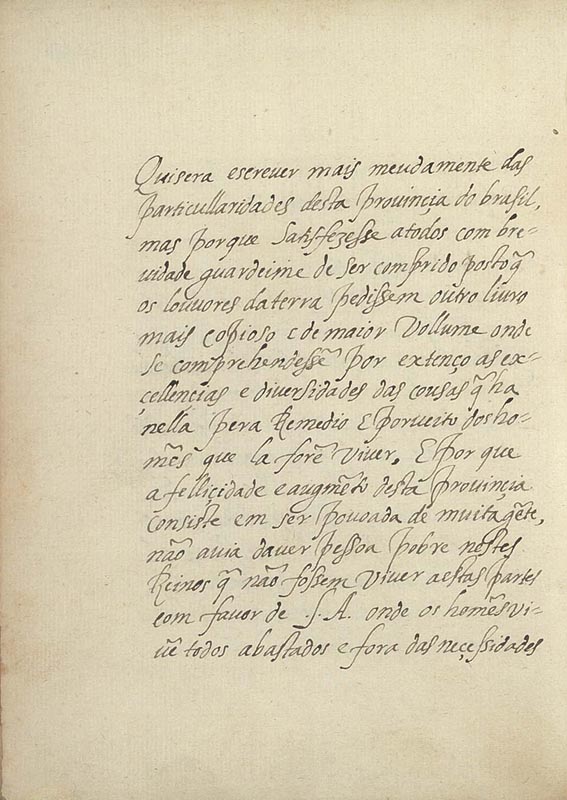 Quisera escrever mais meudamente das
particullaridades desta provinçia do brasil,
mas porque satisfezesse atodos com bre-
vidade guardeime de ser comprido posto q̃
os louvores da terra pedissem outro livro
mais copioso e de maior vollume onde
se comprehendessẽ por extenço as ex-
çellencias e diversidades das cousas q̃ ha
nella pera Remedio E proveito dos ho-
mẽs que la forẽ viver. E por que
a felliçidade e augmẽto desta provincia
consiste em ser povoada de muita gẽte,
não avia daver pessoa pobre nestes
Reinos q̃ não fossem viver a estas partes
com favor de S. A. onde os homẽs vi-
vẽ todos abastados e fora das neçessidades